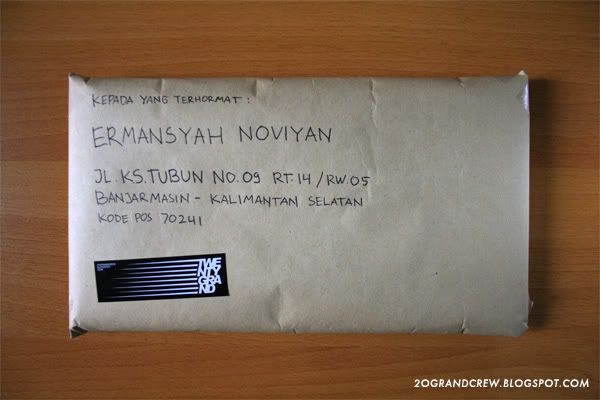 KEPADA YANG TERHORMAT :
ERMANSYAH NOVIYAN
JL. KS. TUBUN NO. 09 RT. 14 / RW. 05
BANJARMASIN - KALIMANTAN SELATAN
KODE POS 70241
TWE
NTY
GRA
ND
20GRANDCREW.BLOGSPOT.COM